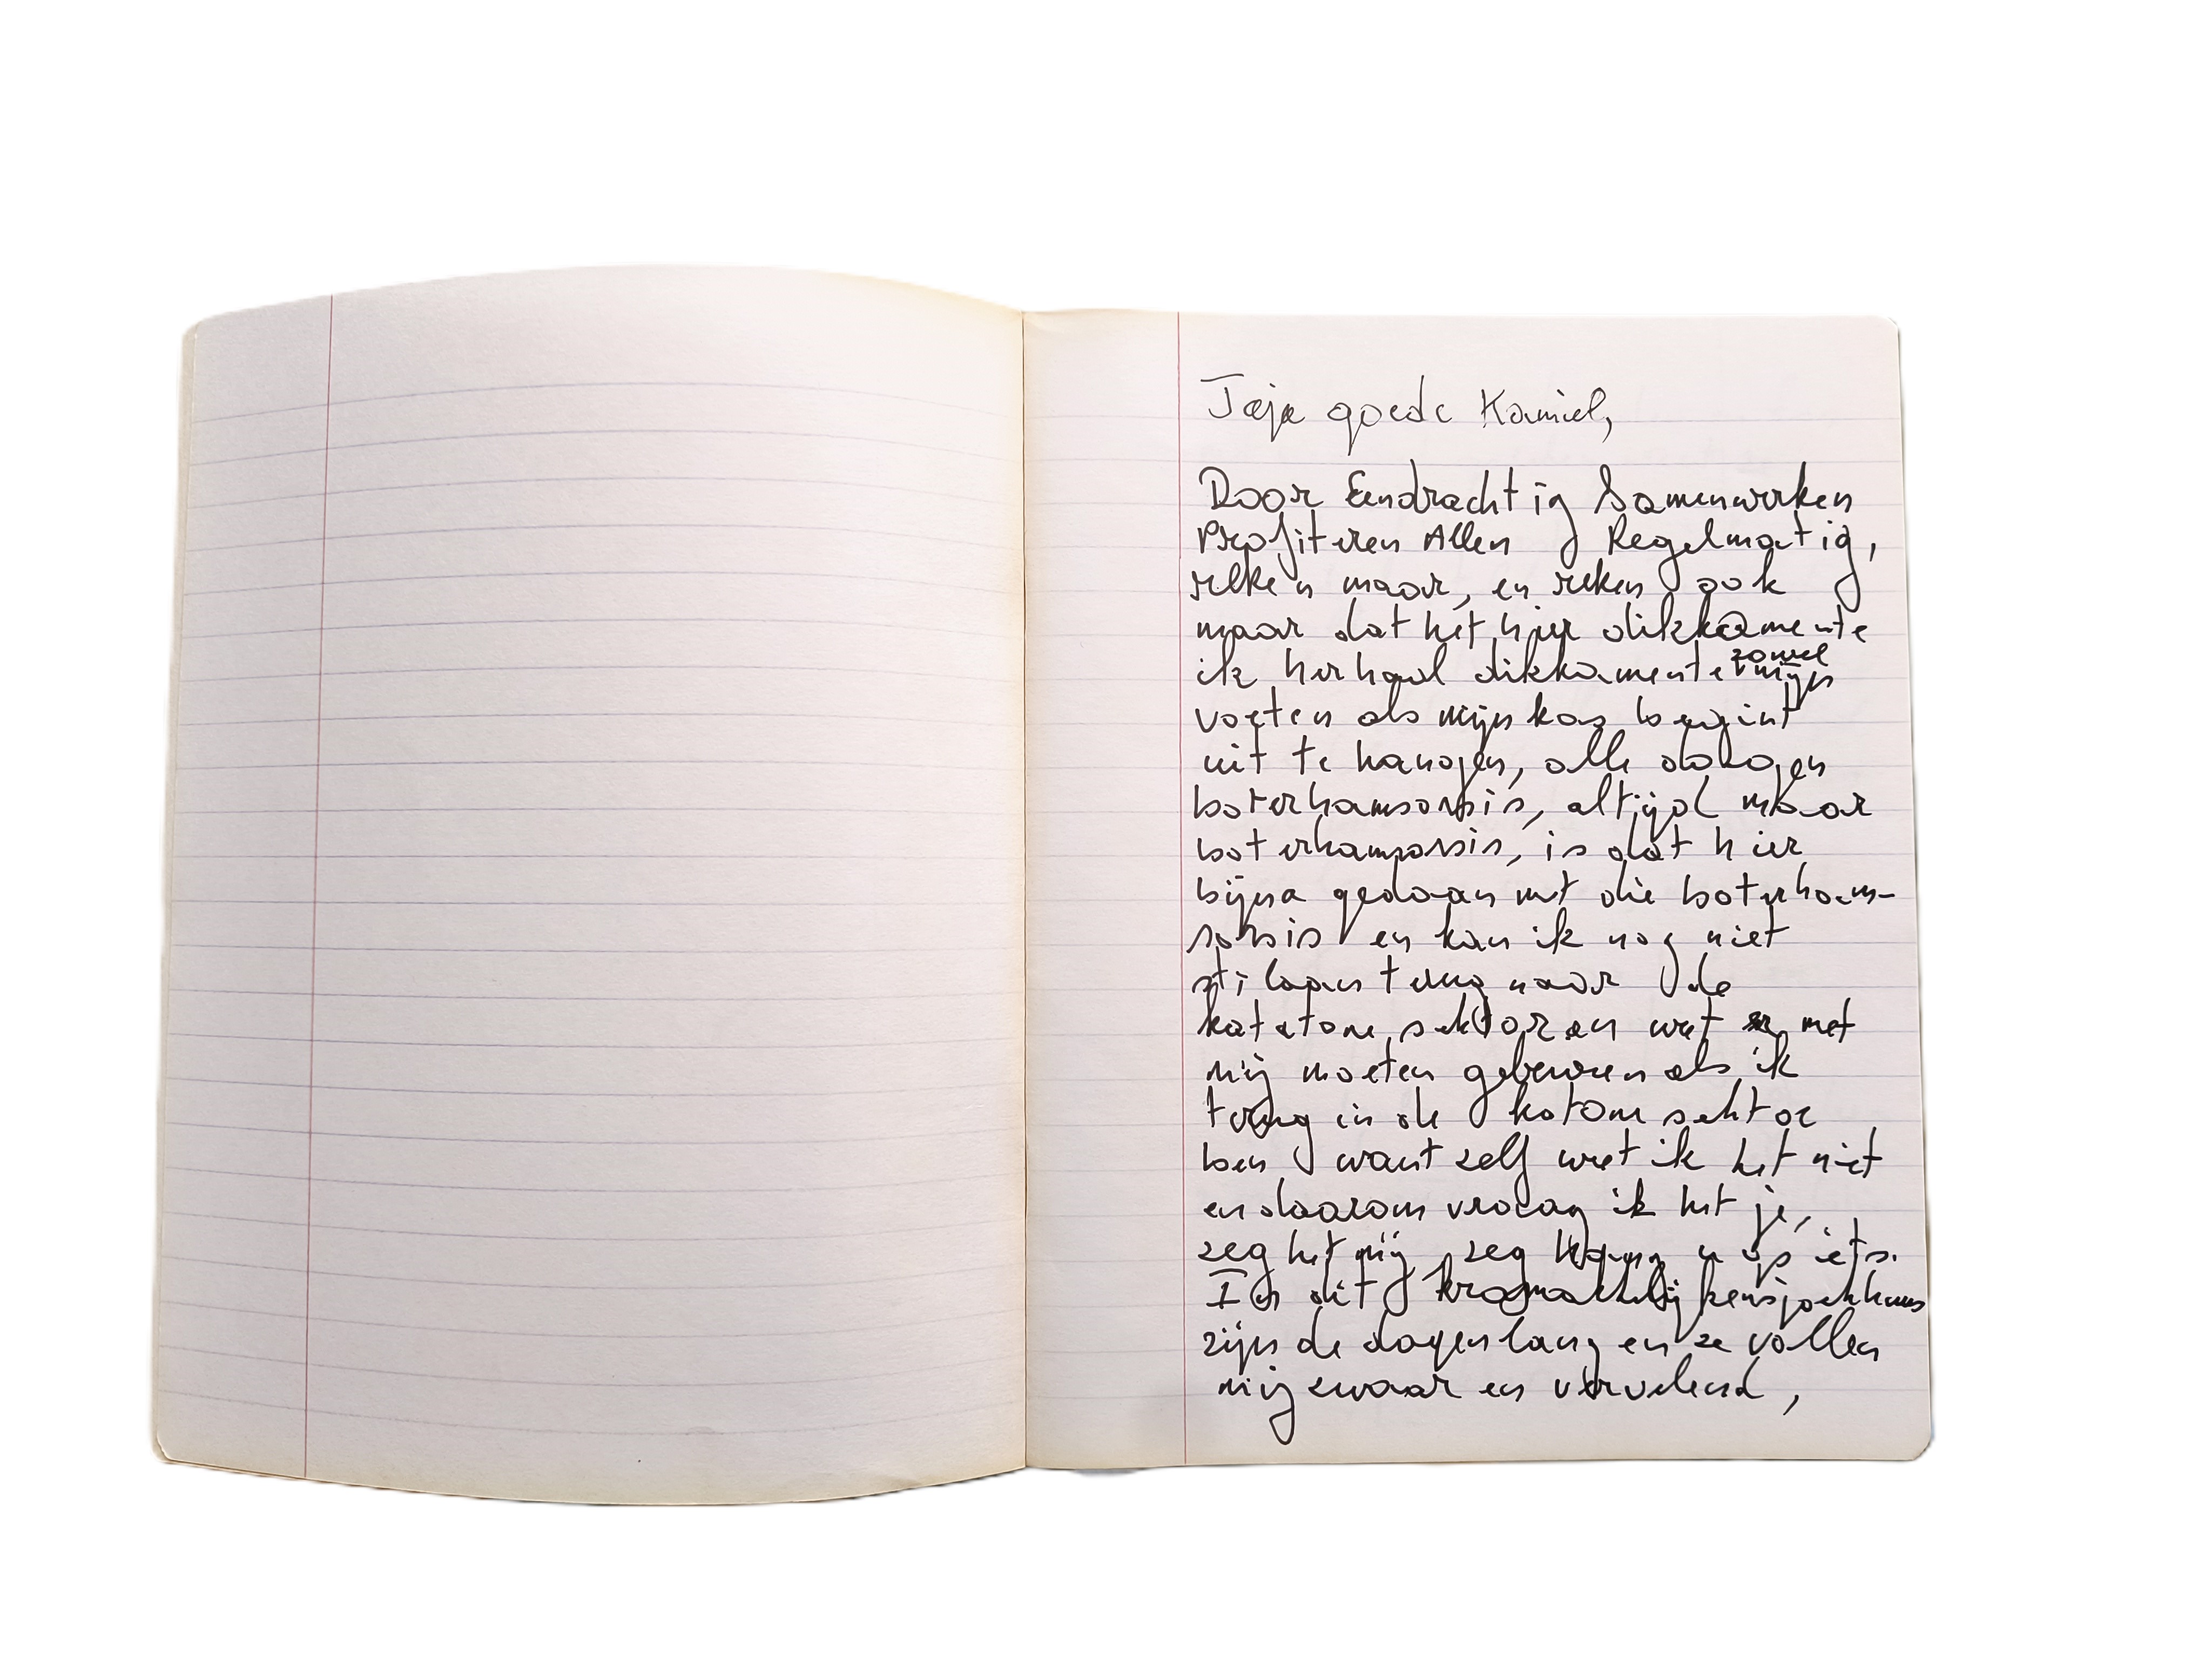 Jaja goede Kamiel,
Door Eendrachtig Samenwerken
Profiteren Allen Regelmatig,
reken maar, en reken ook
maar dat het hier dikkamente
ik herhaal dikkamente zowel mijn
voeten als mijn kas begint
uit te hangen, alle dagen
boterhamsorsis, altijd maar
boterhamsorsis, is dat hier
bijna gedaan met die boterham-
sorsis en kan ik nog niet
terug naar de
katatone sektor en wat met
mij moeten gebeuren als ik
terug in de katone sektor
ben want zelf weet ik het niet
en daarom vraag ik het je,
zeg het mij, zeg u op iets.
In dit
zijn de dagen lang en ze vallen
mij zwaar en vervelend,